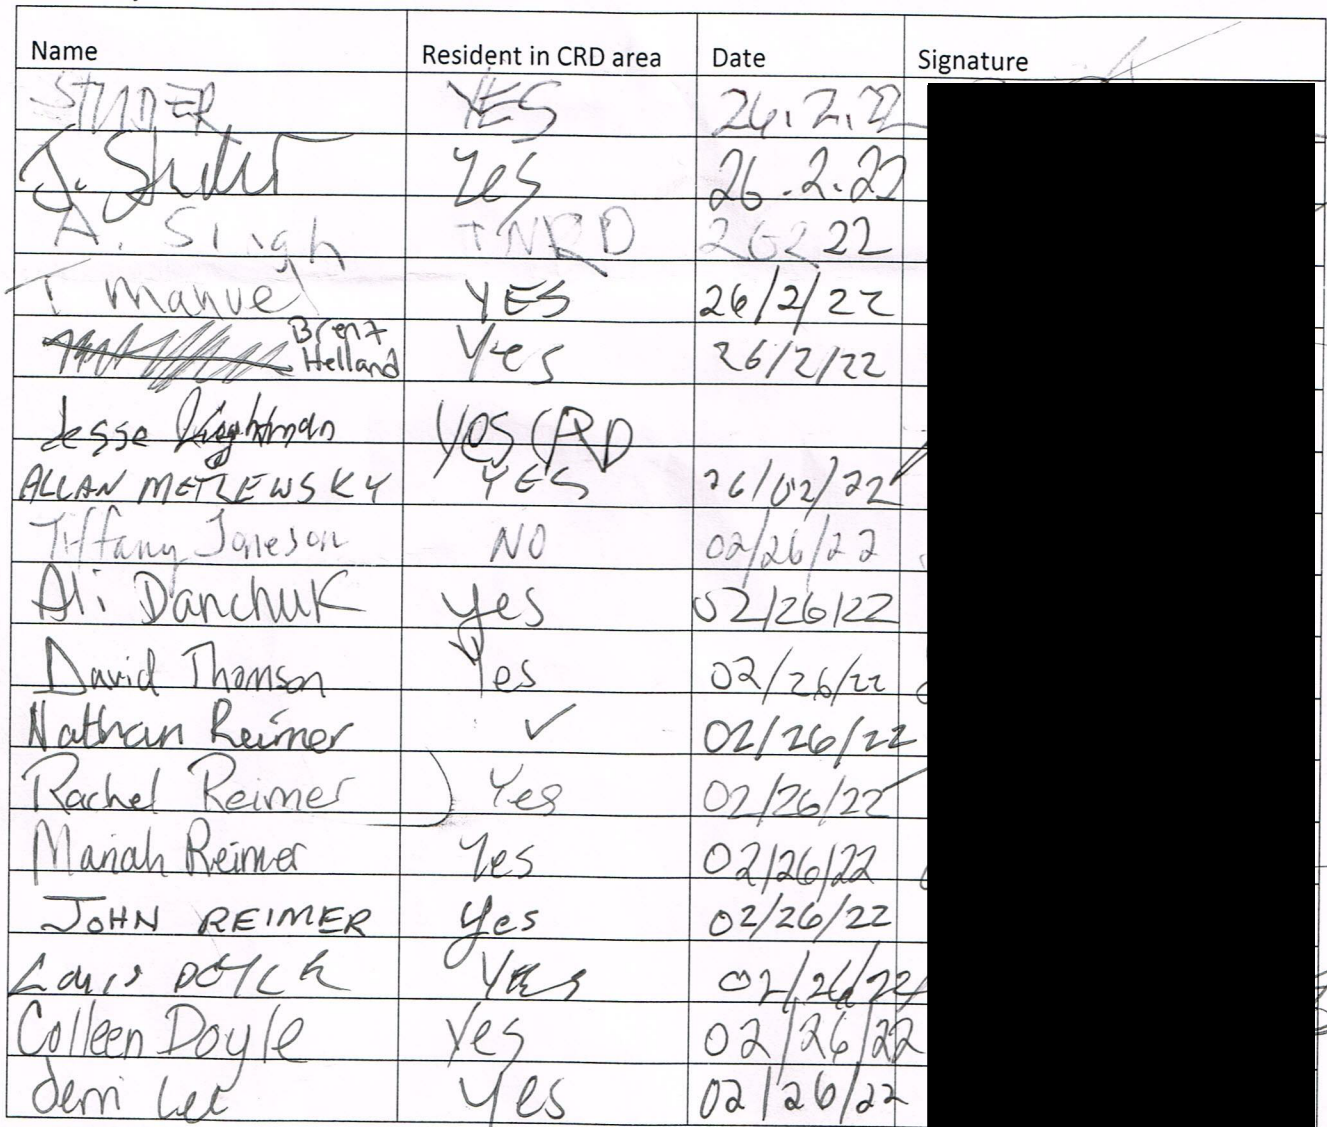 Name Resident in CRD area Date Signature
STUDER YES 26.2.22
J. Yes 26.2.22
A. Singh TNRD 26222
T Manuel YES 26/2/22
Brent Helland Yes 26/2/22
Jesse Yes CRD
ALLAN METLEWSKY YES 26/02/22
Tiffany NO 02/26/22
Ali Danchuk yes 02/26/22
David Thomson Yes 02/26/22
Nathan Reimer ✓ 02/26/22
Rachel Reimer Yes 02/26/22
Mariah Reimer Yes 02/26/22
JOHN REIMER yes 02/26/22
02/26/22
Colleen Doyle Yes 02/26/22
Lee Yes 02/26/22